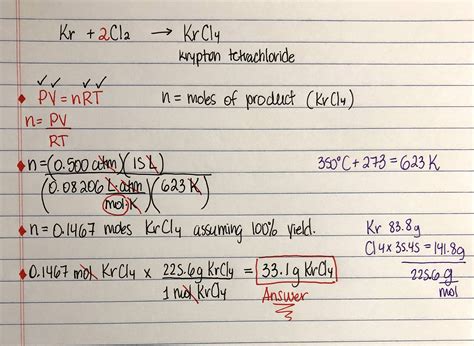 Kr + 2Cl₂ → KrCl₄
krypton tetrachloride
✓✓ ✓✓
♦ PV = nRT n = moles of product (KrCl₄)
n = PV
RT
♦ n = (0.500 atm)(15 L) 350°C + 273 = 623 K
(0.08206 L atm)(623 K)
mol K
♦ n = 0.1467 moles KrCl₄ assuming 100% yield.
Kr 83.8g
Cl 4 x 35.45 = 141.8g
225.6 g
mol
♦ 0.1467 mol KrCl₄ x 225.6g KrCl₄ = 33.1 g KrCl₄
1 mol KrCl₄
Answer